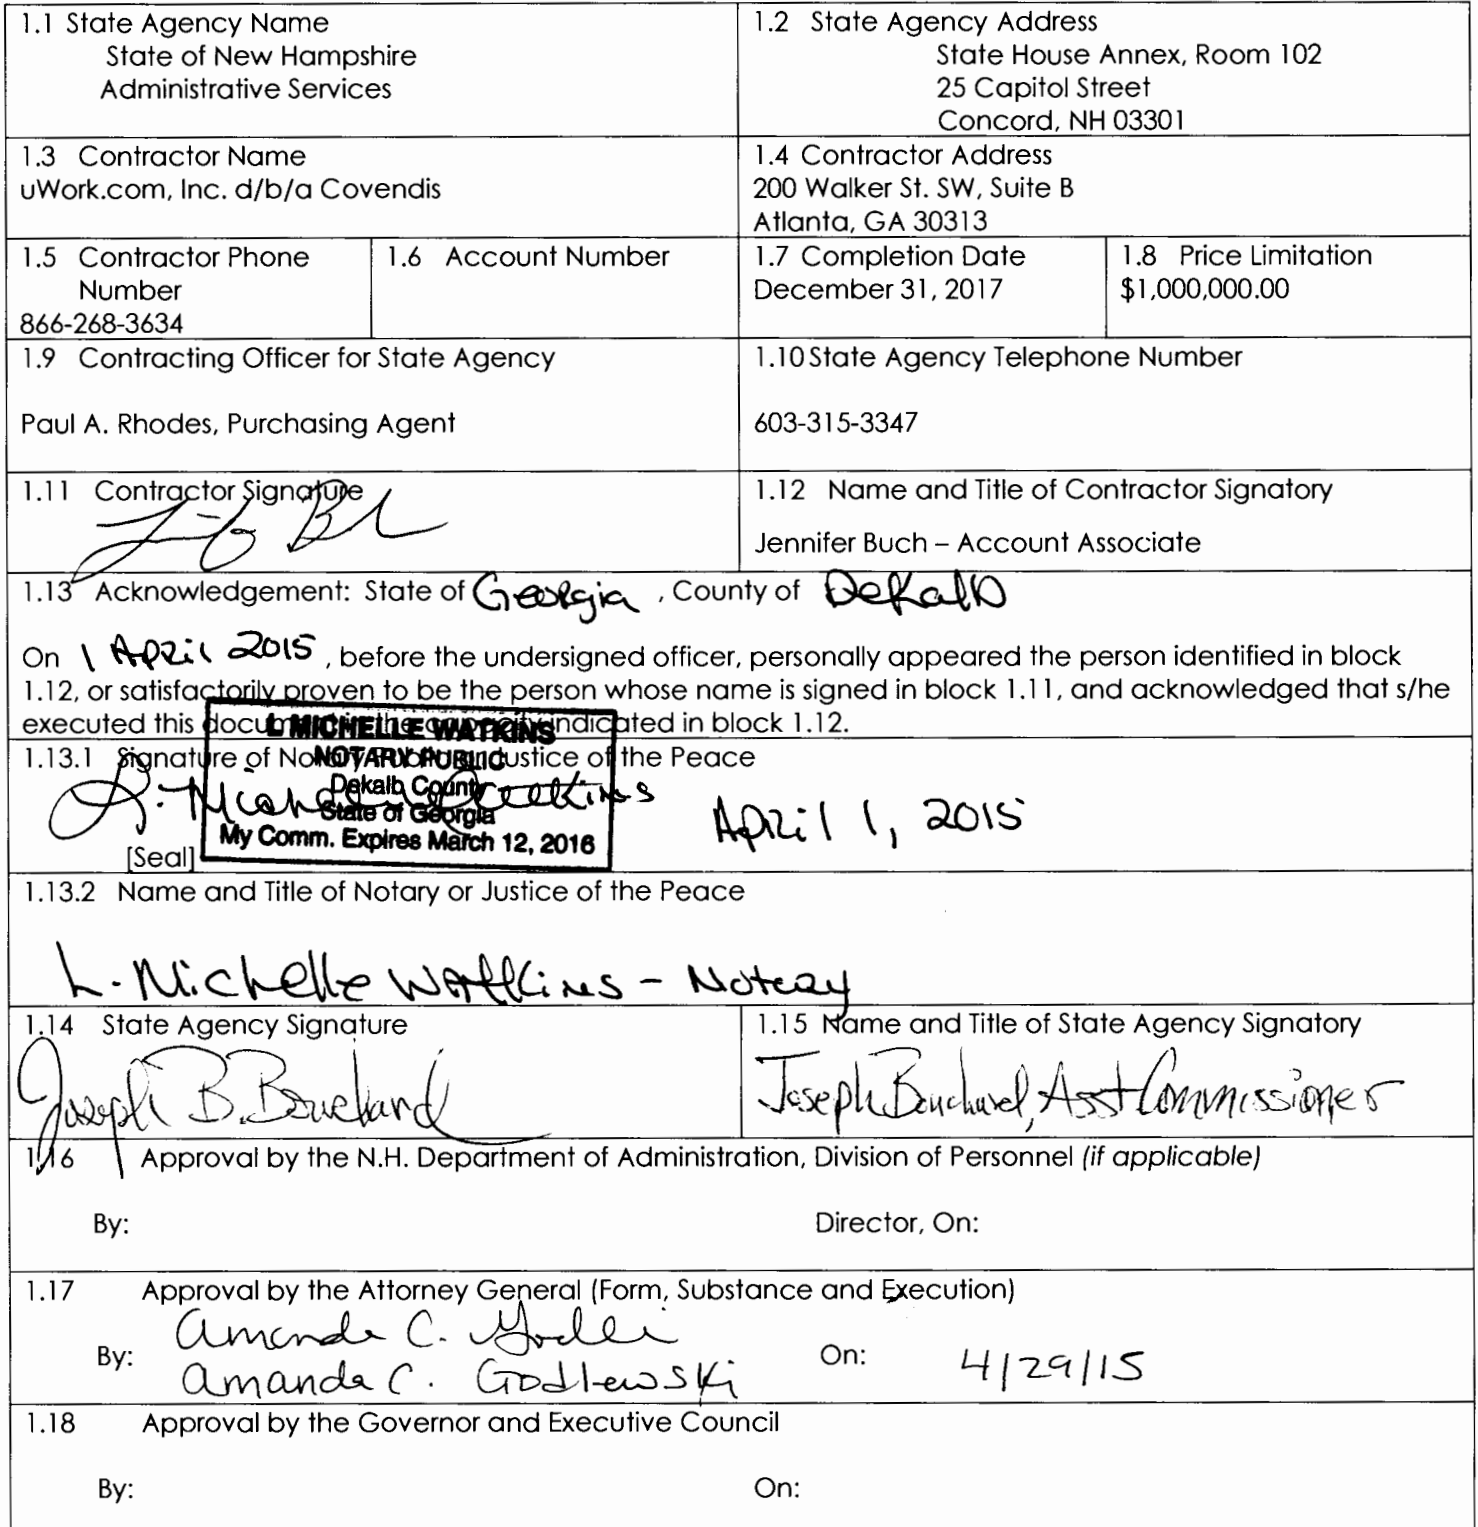 1.1 State Agency Name
State of New Hampshire
Administrative Services
1.2 State Agency Address
State House Annex, Room 102
25 Capitol Street
Concord, NH 03301
1.3 Contractor Name
uWork.com, Inc. d/b/a Covendis
1.4 Contractor Address
200 Walker St. SW, Suite B
Atlanta, GA 30313
1.5 Contractor Phone
Number
866-268-3634
1.6 Account Number
1.7 Completion Date
December 31, 2017
1.8 Price Limitation
$1,000,000.00
1.9 Contracting Officer for State Agency
Paul A. Rhodes, Purchasing Agent
1.10 State Agency Telephone Number
603-315-3347
1.11 Contractor Signature
1.12 Name and Title of Contractor Signatory
Jennifer Buch – Account Associate
1.13 Acknowledgement: State of Georgia, County of DeKalb
On 1 April 2015, before the undersigned officer, personally appeared the person identified in block
1.12, or satisfactorily proven to be the person whose name is signed in block 1.11, and acknowledged that s/he
executed this document in the capacity indicated in block 1.12.
1.13.1 Signature of Notary Public or Justice of the Peace
L. Michelle Watkins
April 1, 2015
[Seal]
L MICHELLE WATKINS
NOTARY PUBLIC
Dekalb County
State of Georgia
My Comm. Expires March 12, 2016
1.13.2 Name and Title of Notary or Justice of the Peace
L. Michelle Watkins - Notary
1.14 State Agency Signature
Joseph B. Bouchard
1.15 Name and Title of State Agency Signatory
Joseph Bouchard, Asst Commissioner
1.16 Approval by the N.H. Department of Administration, Division of Personnel (if applicable)
By:
Director, On:
1.17 Approval by the Attorney General (Form, Substance and Execution)
By: Amanda C.
Amanda C. Godlewski
On: 4/29/15
1.18 Approval by the Governor and Executive Council
By:
On: